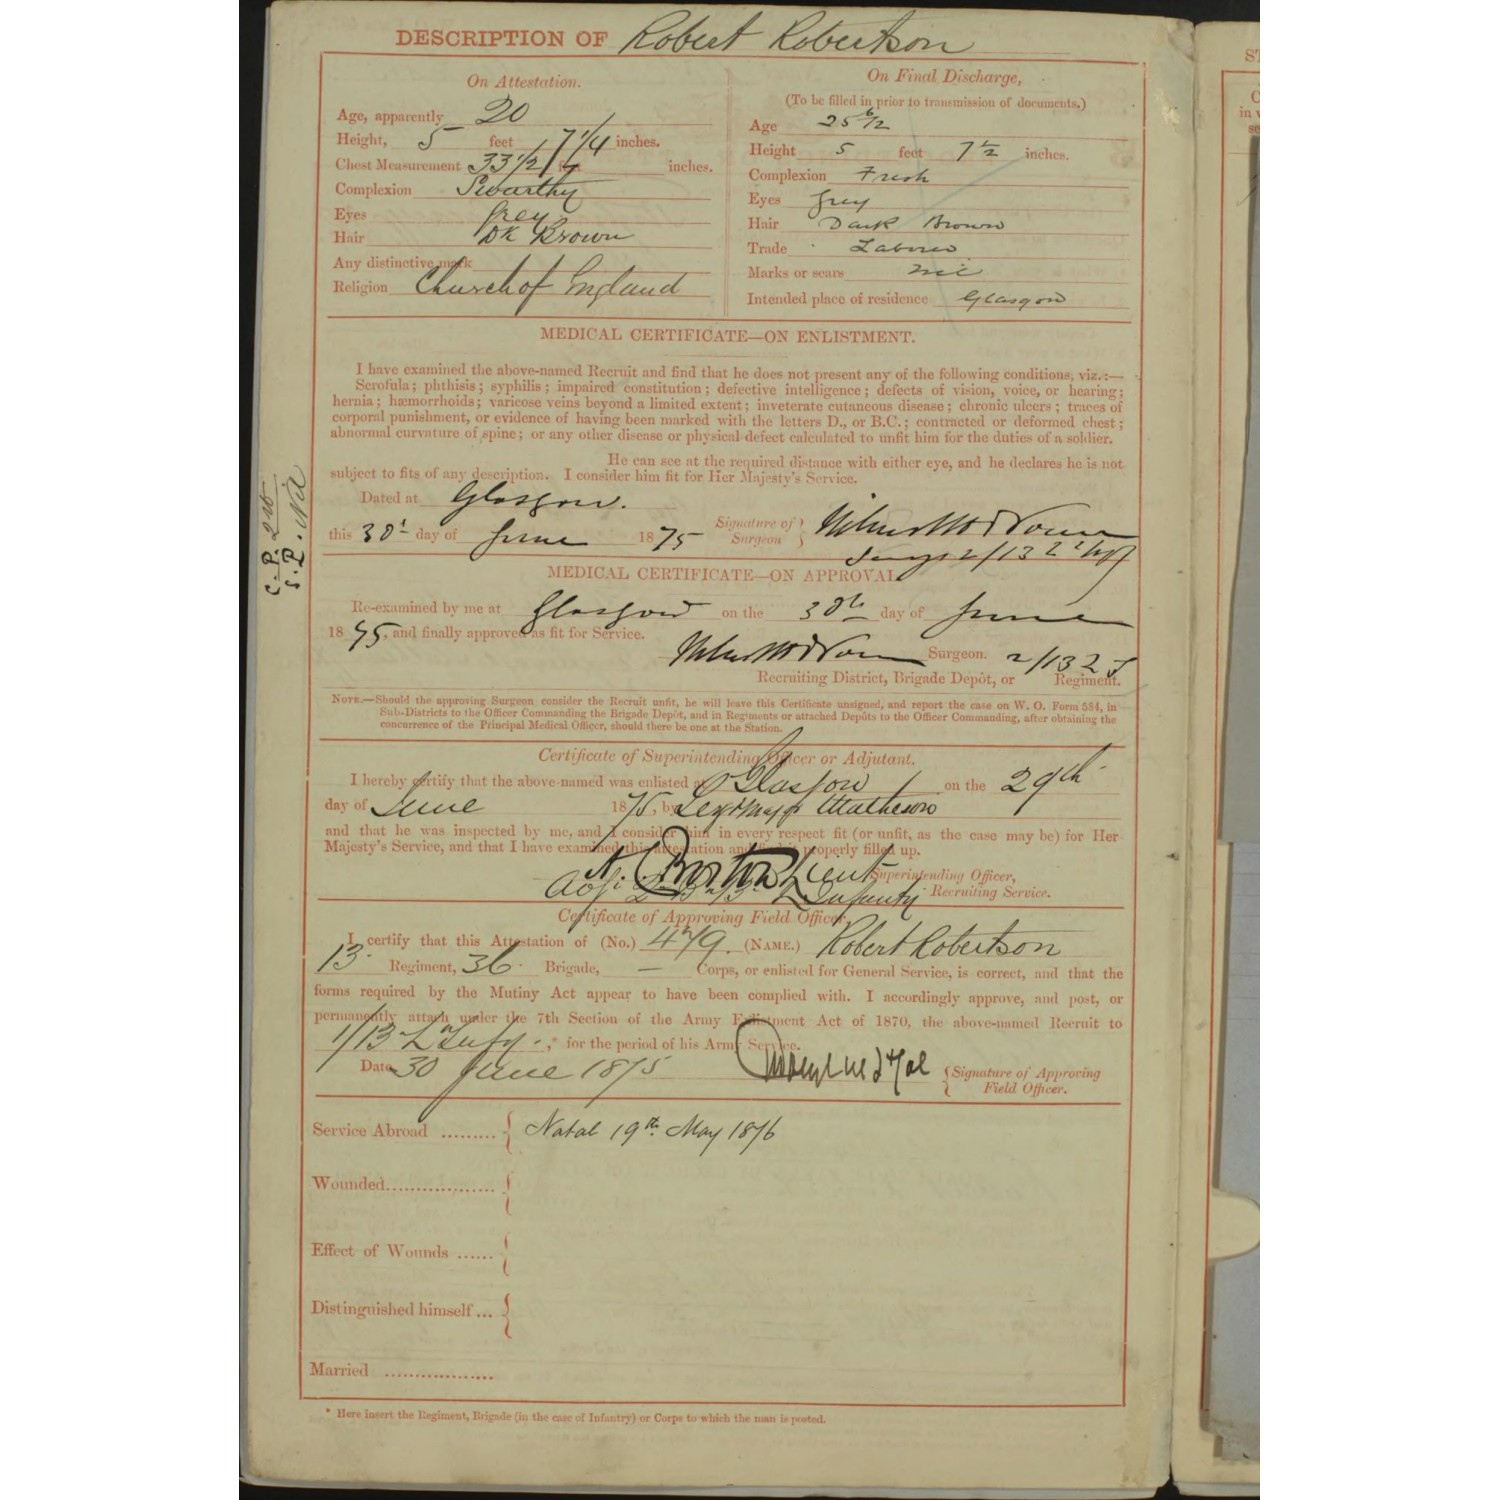 DESCRIPTION OF Robert Robertson
On Attestation.
Age, apparently 20
Height, 5 feet 7 1/4 inches.
Chest Measurement 33 1/2 inches.
Complexion Swarthy
Eyes Grey
Hair Dk Brown
Any distinctive mark
Religion Church of England
On Final Discharge,
(To be filled in prior to transmission of documents.)
Age 25 6/12
Height 5 feet 7 1/2 inches.
Complexion Fresh
Eyes Grey
Hair Dark Brown
Trade Laborer
Marks or scars nil
Intended place of residence Glasgow
MEDICAL CERTIFICATE—ON ENLISTMENT.
I have examined the above-named Recruit and find that he does not present any of the following conditions, viz.:—
Scrofula; phthisis; syphilis; impaired constitution; defective intelligence; defects of vision, voice, or hearing;
hernia; hæmorrhoids; varicose veins beyond a limited extent; inveterate cutaneous disease; chronic ulcers; traces of
corporal punishment, or evidence of having been marked with the letters D., or B.C.; contracted or deformed chest;
abnormal curvature of spine; or any other disease or physical defect calculated to unfit him for the duties of a soldier.
He can see at the required distance with either eye, and he declares he is not
subject to fits of any description. I consider him fit for Her Majesty's Service.
Dated at Glasgow.
this 30t day of June 1875 Signature of
Surgeon
C.P.
S.P. Nil
MEDICAL CERTIFICATE—ON APPROVAL
Re-examined by me at Glasgow on the 30th day of June
1875, and finally approved as fit for Service.
Surgeon. 2/13
Recruiting District, Brigade Depôt, or Regiment.
NOTE.—Should the approving Surgeon consider the Recruit unfit, he will leave this Certificate unsigned, and report the case on W. O. Form 584, in
Sub-Districts to the Officer Commanding the Brigade Depôt, and in Regiments or attached Depôts to the Officer Commanding, after obtaining the
concurrence of the Principal Medical Officer, should there be one at the Station.
Certificate of Superintending Officer or Adjutant.
I hereby certify that the above-named was enlisted at Glasgow on the 29th
day of June 1875, by Matheson
and that he was inspected by me, and I consider him in every respect fit (or unfit, as the case may be) for Her
Majesty's Service, and that I have examined this attestation and find it properly filled up.
Lieut Superintending Officer,
Infantry Recruiting Service.
Certificate of Approving Field Officer.
I certify that this Attestation of (No.) 479. (NAME.) Robert Robertson
13 Regiment, 36 Brigade, — Corps, or enlisted for General Service, is correct, and that the
forms required by the Mutiny Act appear to have been complied with. I accordingly approve, and post, or
permanently attach under the 7th Section of the Army Enlistment Act of 1870, the above-named Recruit to
1/13 L Infy.,* for the period of his Army Service.
Date 30 June 1875 Signature of Approving
Field Officer.
Service Abroad ......... Natal 19th May 1876
Wounded..................
Effect of Wounds ......
Distinguished himself ...
Married ..................
* Here insert the Regiment, Brigade (in the case of Infantry) or Corps to which the man is posted.